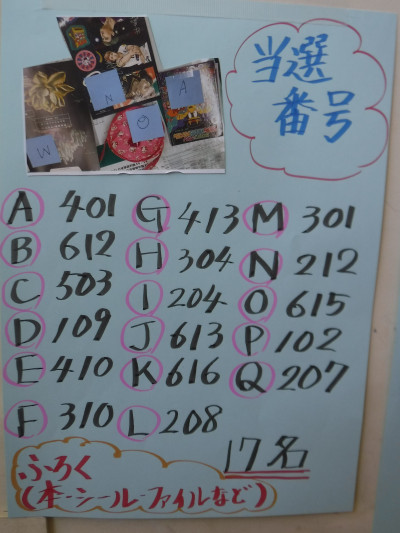 W
N
O
A
当選
番号
A 401
B 612
C 503
D 109
E 410
F 310
G 413
H 304
I 204
J 613
K 616
L 208
M 301
N 212
O 615
P 102
Q 207
17名
ふろく
(本-シール-ファイルなど)